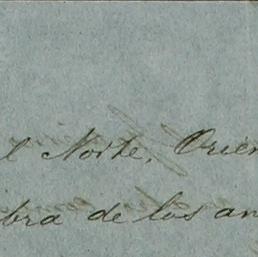 l Norte, Orien
bra de los an